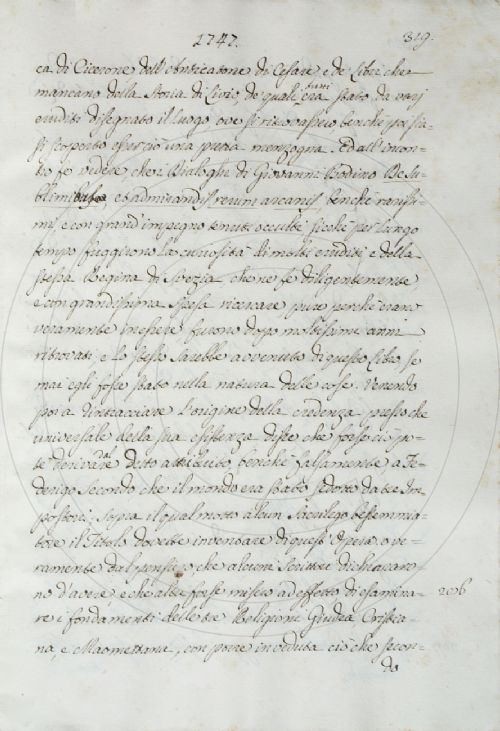 1747.
319.
ca di Cicerone dell'obtrecatone di Cesare, e de Libri che
mancano della Storia di Livio, de quali era stato da varj
tuni
eruditi disegnato il luogo, ove si ritrovassero benchè poi sia=
si scoperto esserciò una prava menzogna. Ed all'incon=
tro fe vedere che i Dialoghi di Giovanni Bodino De Su=
blimibus et admirandis rerum arcanis, benchè rarissi=
mi, e con grand'impegno tenuti occulti sicchè per lungo
tempo fuggirono la curiosità di molti eruditi e della
stessa Regina di Svezia che ne fe diligentemente,
e con grandissima spesa ricercare, pure perchè erano
veramente in essere, furono dopo moltissimi anni
ritrovati; e lo stesso sarebbe avvenuto di questo Libro se
mai egli fosse stato nella natura delle cose. Venendo
poi a rintracciare l'origine della credenza presso che
universale della sua esistenza disse che forse ciò po=
te derivare dal detto attribuito, benchè falsamente a Fe=
derigo Secondo che il mondo era stato sedotto da tre Im=
postori; sopra il qual motto alcun sacrilego bestemmia=
tore il Titolo dovette inventare di quest'Opera, o ve=
ramente dal pensiero che alcuni Scrittori dichiararo=
no d'avere, e che altri forse misero ad effetto di esamina=
206
re i fondamenti delle tre Religioni Giudea Cristia=
na, e Maomettana, con porre in veduta ciò che secon=
do